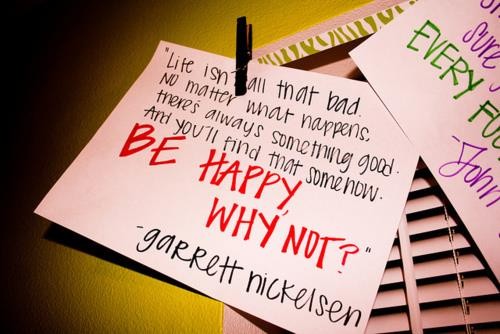 "Life isn't all that bad.
No matter what happens,
there's always something good.
And you'll find that somehow.
BE HAPPY,
WHY NOT?"
-garrett nickelsen
EVERY
-John